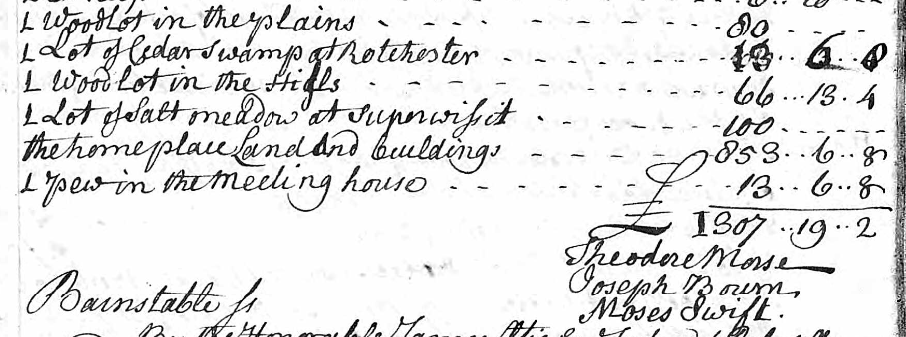 1 Woodlot in the plains - - - - - - - 80 - - - -
1 Lot of Cedar Swamp at Rotchester - - - - - - 13 6 8
1 Woodlot in the - - - - - - 66 .. 13 . 4
1 Lot of Salt meadow at Superwissit - - - - - 100 - - - -
the homeplace Land And buildings - - - - - - 853 .. 6 .. 8
1 pew in the Meeting house - - - - - - £ 13 .. 6 .. 8
1307 .. 19 .. 2
Theodore Morse
Joseph Bourn
Moses Swift.
Barnstable ss
By the Honorable